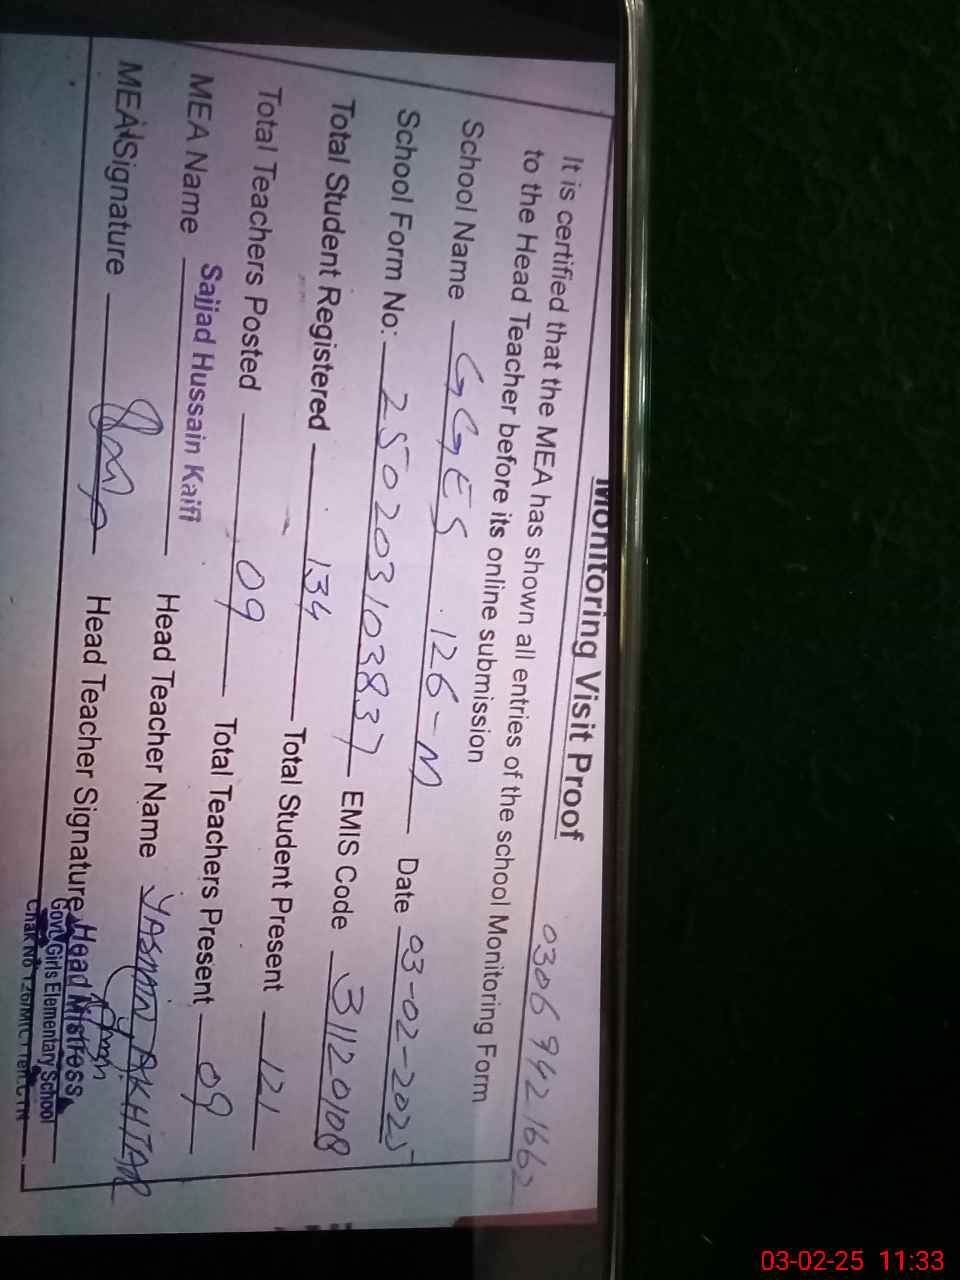 Monitoring Visit Proof
0306 9421662
It is certified that the MEA has shown all entries of the school Monitoring Form
to the Head Teacher before its online submission
School Name GGES 126-M Date 03-02-2025
School Form No: 250203103837 EMIS Code 31120108
Total Student Registered 134 Total Student Present 121
Total Teachers Posted 09 Total Teachers Present 09
MEA Name Sajjad Hussain Kaifi Head Teacher Name YASMIN AKHTAR
MEA Signature Head Teacher Signature
Head Mistress
Govt. Girls Elementary School
Chak No 126/M
03-02-25 11:33